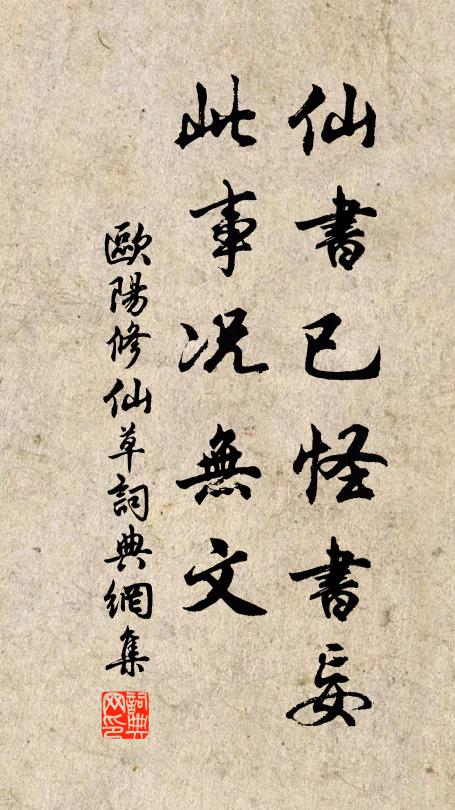 仙書已怪書妄
此事況無文
歐陽修仙草詞典網集
詞典网印